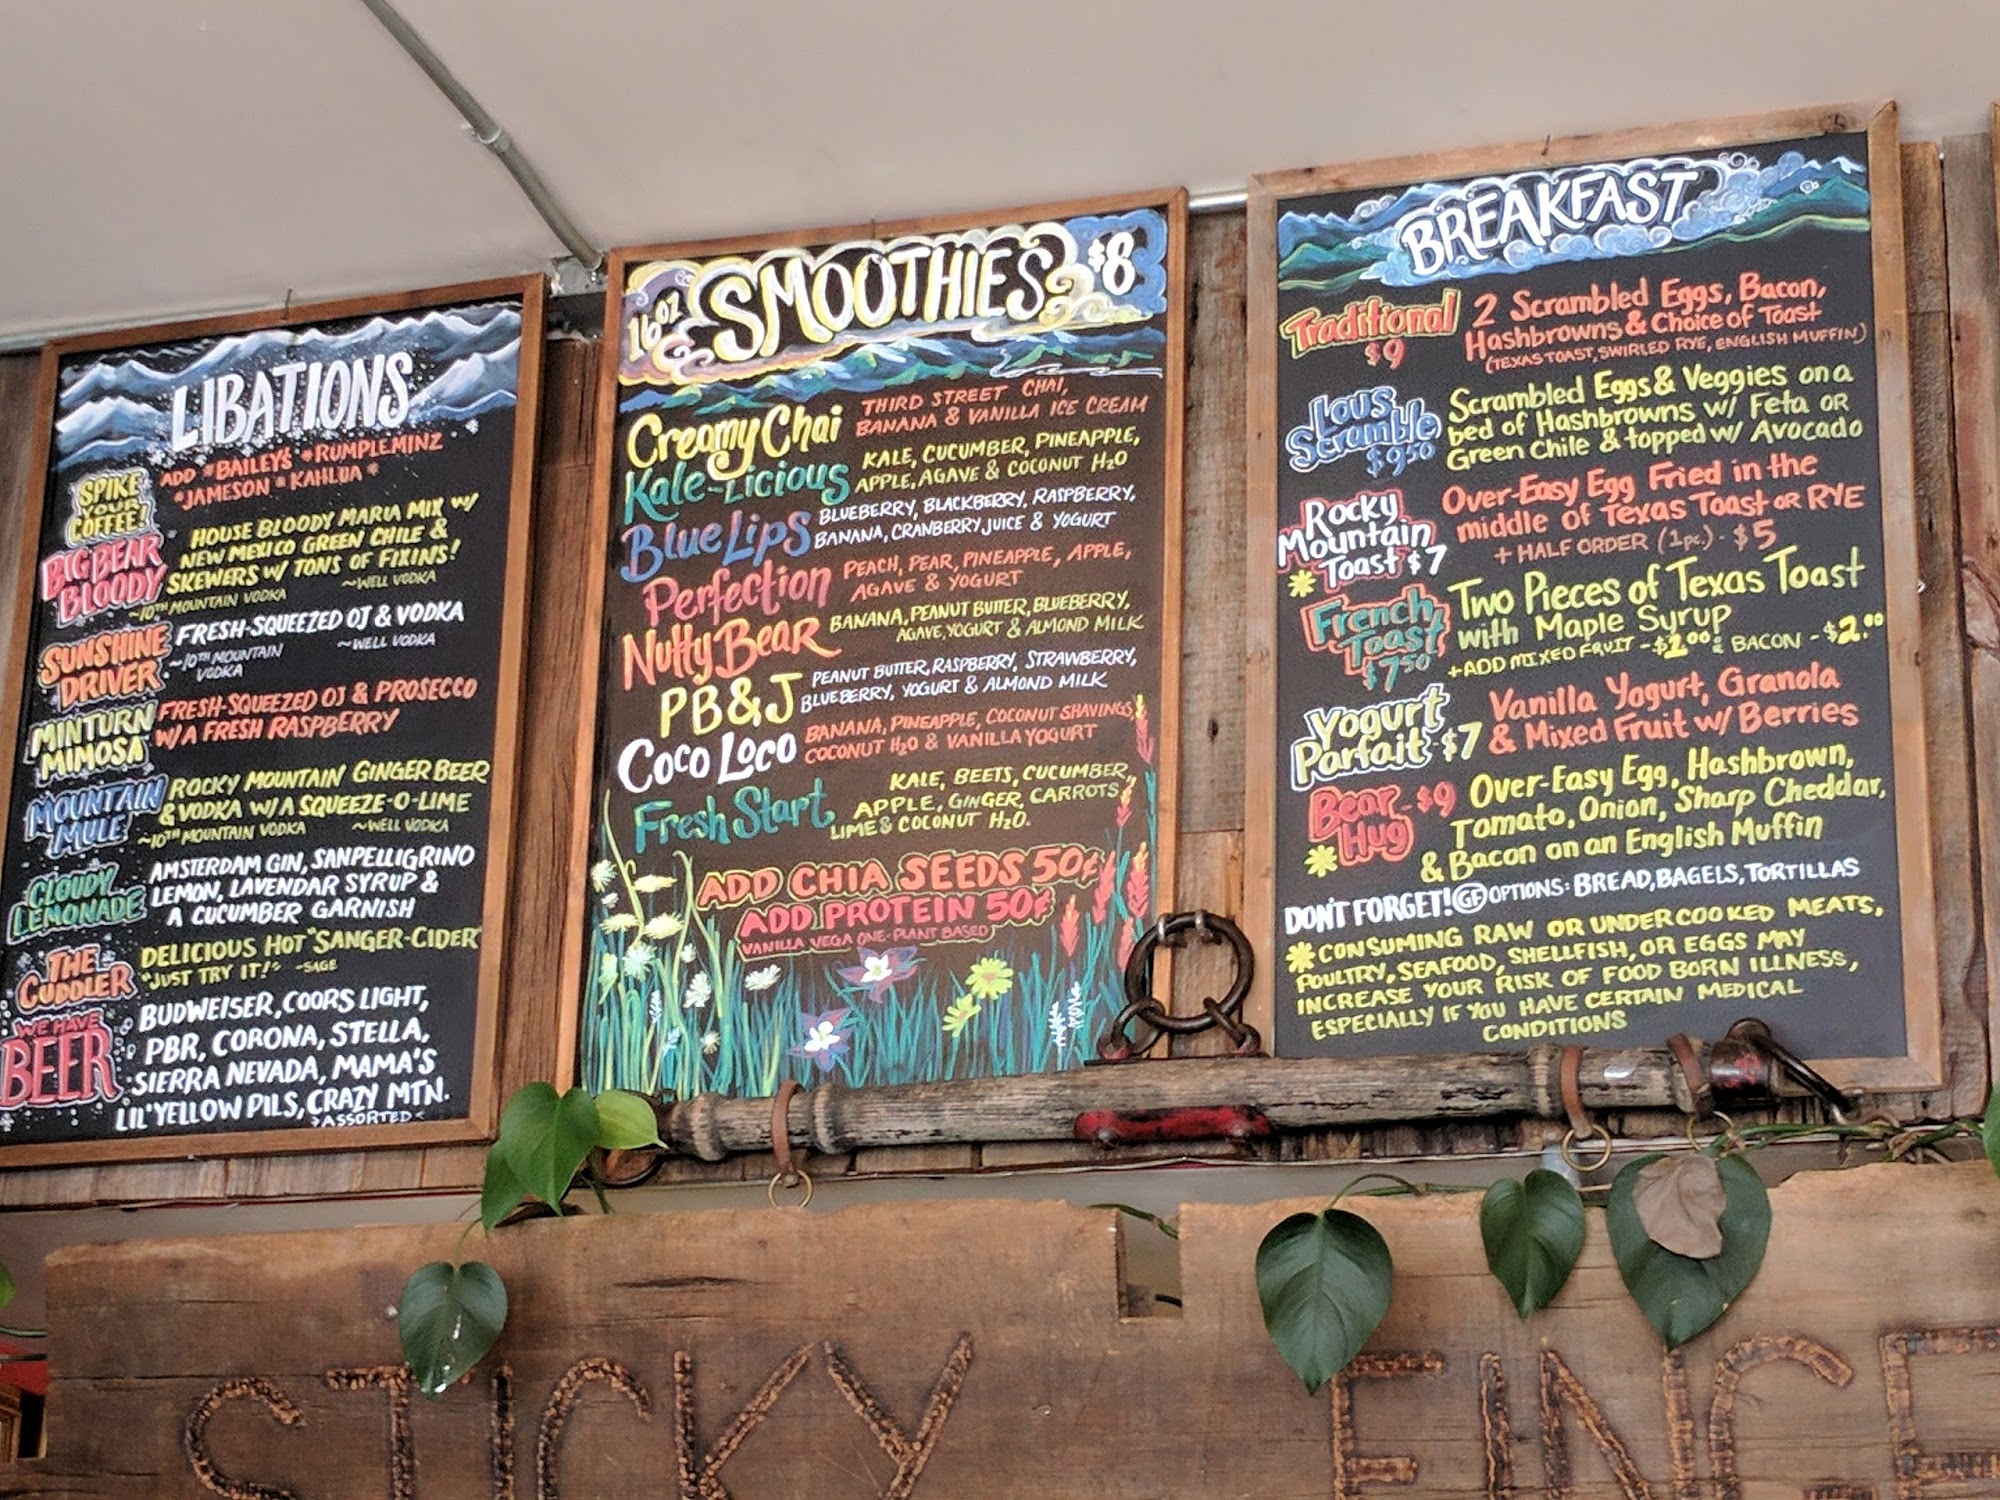 LIBATIONS
SPIKE
YOUR
COFFEE!
ADD *BAILEY'S *RUMPLEMINZ
*JAMESON *KAHLUA*
BIG BEAR
BLOODY
HOUSE BLOODY MARIA MIX W/
NEW MEXICO GREEN CHILE &
SKEWERS W/ TONS OF FIXINS!
~10TH MOUNTAIN VODKA ~WELL VODKA
SUNSHINE
DRIVER
FRESH-SQUEEZED OJ & VODKA
~10TH MOUNTAIN
VODKA
~WELL VODKA
MINTURN
MIMOSA
FRESH-SQUEEZED OJ & PROSECCO
W/A FRESH RASPBERRY
MOUNTAIN
MULE
ROCKY MOUNTAIN GINGER BEER
& VODKA W/A SQUEEZE-O-LIME
~10TH MOUNTAIN VODKA ~WELL VODKA
CLOUDY
LEMONADE
AMSTERDAM GIN, SANPELLIGRINO
LEMON, LAVENDAR SYRUP &
A CUCUMBER GARNISH
THE
CUDDLER
DELICIOUS HOT "SANGER-CIDER"
"JUST TRY IT!" -SAGE
WE HAVE
BEER
BUDWEISER, COORS LIGHT,
PBR, CORONA, STELLA,
SIERRA NEVADA, MAMA'S
LIL' YELLOW PILS, CRAZY MTN.
>ASSORTED<
16 OZ SMOOTHIES $8
Creamy Chai
THIRD STREET CHAI,
BANANA & VANILLA ICE CREAM
Kale-Licious
KALE, CUCUMBER, PINEAPPLE,
APPLE, AGAVE & COCONUT H2O
Blue Lips
BLUEBERRY, BLACKBERRY, RASPBERRY,
BANANA, CRANBERRY JUICE & YOGURT
Perfection
PEACH, PEAR, PINEAPPLE, APPLE,
AGAVE & YOGURT
Nutty Bear
BANANA, PEANUT BUTTER, BLUEBERRY,
AGAVE, YOGURT & ALMOND MILK
PB&J
PEANUT BUTTER, RASPBERRY, STRAWBERRY,
BLUEBERRY, YOGURT & ALMOND MILK
Coco Loco
BANANA, PINEAPPLE, COCONUT SHAVINGS,
COCONUT H2O & VANILLA YOGURT
Fresh Start
KALE, BEETS, CUCUMBER,
APPLE, GINGER, CARROTS,
LIME & COCONUT H2O.
ADD CHIA SEEDS 50¢
ADD PROTEIN 50¢
VANILLA VEGA ONE-PLANT BASED
BREAKFAST
Traditional
$9
2 Scrambled Eggs, Bacon,
Hashbrowns & Choice of Toast
(TEXAS TOAST, SWIRLED RYE, ENGLISH MUFFIN)
Lous
Scramble
$9.50
Scrambled Eggs & Veggies on a
bed of Hashbrowns w/ Feta OR
Green Chile & topped w/ Avocado
Rocky
Mountain
* Toast $7
Over-Easy Egg Fried in the
middle of Texas Toast OR RYE
+ HALF ORDER (1pc.) - $5
French
Toast
$7.50
Two Pieces of Texas Toast
with Maple Syrup
+ADD MIXED FRUIT - $2.00 & BACON - $2.00
Yogurt
Parfait $7
Vanilla Yogurt, Granola
& Mixed Fruit w/ Berries
Bear - $9
* Hug
Over-Easy Egg, Hashbrown,
Tomato, Onion, Sharp Cheddar,
& Bacon on an English Muffin
DON'T FORGET! GF OPTIONS: BREAD, BAGELS, TORTILLAS
* CONSUMING RAW OR UNDERCOOKED MEATS,
POULTRY, SEAFOOD, SHELLFISH, OR EGGS MAY
INCREASE YOUR RISK OF FOOD BORN ILLNESS,
ESPECIALLY IF YOU HAVE CERTAIN MEDICAL
CONDITIONS
STICKY FINGE